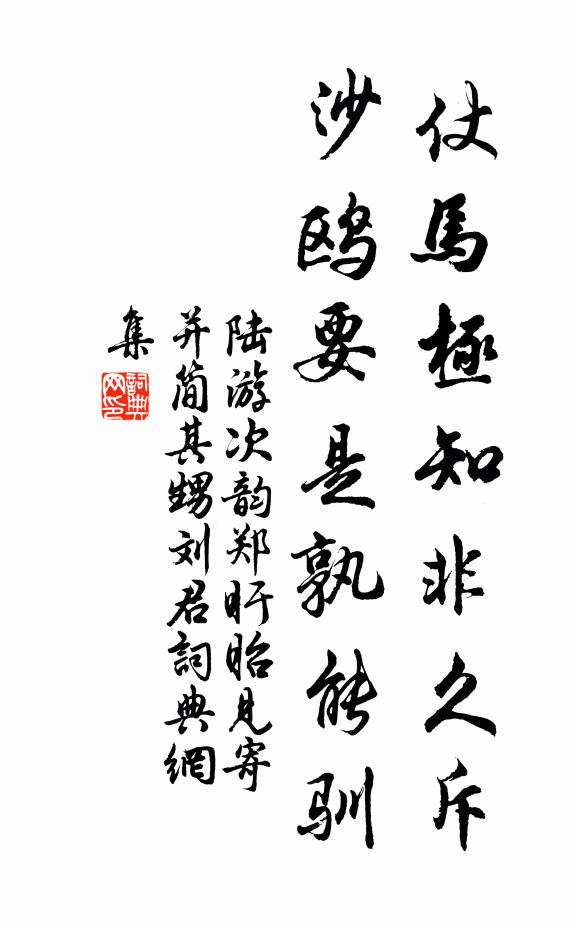 仗馬極知非久斥
沙鸥要是孰能驯
陆游次韵郑盱眙見寄
并简其甥刘君詞典網
集
詞典
网印